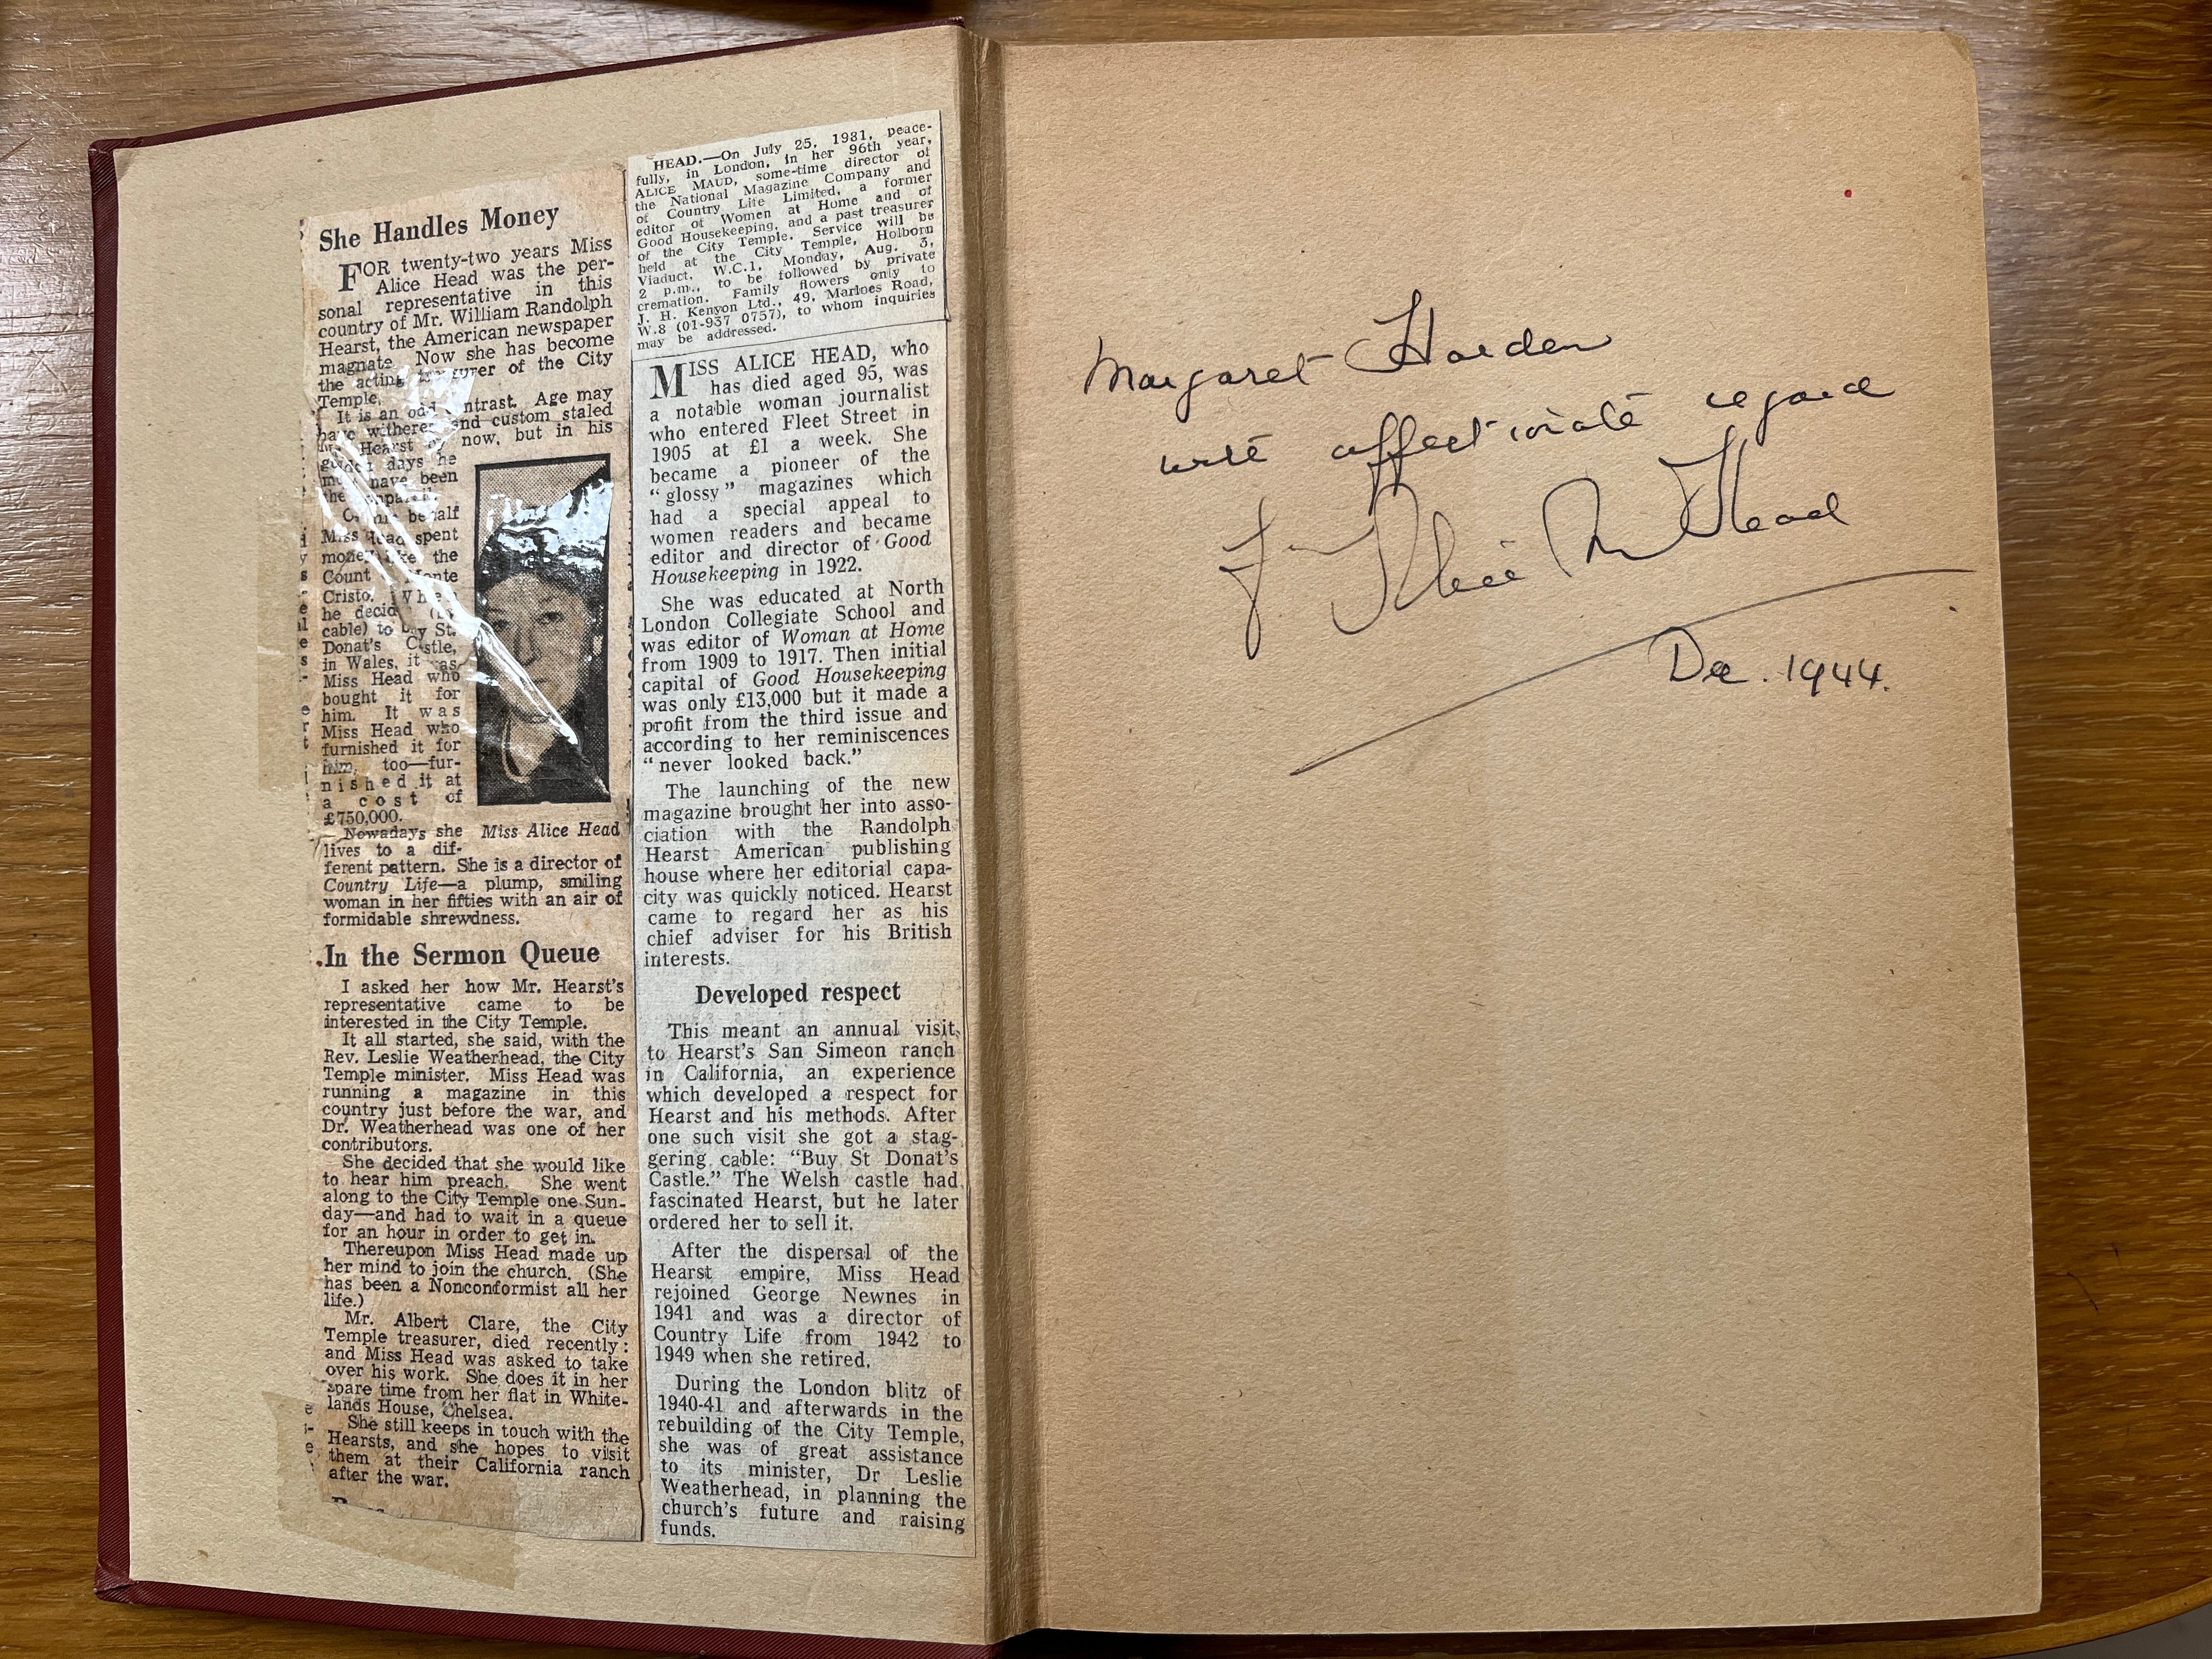 She Handles Money
FOR twenty-two years Miss
Alice Head was the per-
sonal representative in this
country of Mr. William Randolph
Hearst, the American newspaper
magnate. Now she has become
the acting treasurer of the City
Temple.
It is an odd contrast. Age may
have withered and custom staled
Mr. Hearst by now, but in his
golden days he
must have been
the
On his behalf
Miss Head spent
money like the
Count Monte
Cristo. When
he decid (by
cable) to buy St.
Donat's Castle,
in Wales, it was
Miss Head who
bought it for
him. It was
Miss Head who
furnished it for
him, too—fur-
nished it at
a cost of
£750,000.
Miss Alice Head
Nowadays she
lives to a dif-
ferent pattern. She is a director of
Country Life—a plump, smiling
woman in her fifties with an air of
formidable shrewdness.
In the Sermon Queue
I asked her how Mr. Hearst's
representative came to be
interested in the City Temple.
It all started, she said, with the
Rev. Leslie Weatherhead, the City
Temple minister. Miss Head was
running a magazine in this
country just before the war, and
Dr. Weatherhead was one of her
contributors.
She decided that she would like
to hear him preach. She went
along to the City Temple one Sun-
day—and had to wait in a queue
for an hour in order to get in.
Thereupon Miss Head made up
her mind to join the church. (She
has been a Nonconformist all her
life.)
Mr. Albert Clare, the City
Temple treasurer, died recently:
and Miss Head was asked to take
over his work. She does it in her
spare time from her flat in White-
lands House, Chelsea.
She still keeps in touch with the
Hearsts, and she hopes to visit
them at their California ranch
after the war.
HEAD.—On July 25, 1981, peace-
fully, in London, in her 96th year,
ALICE MAUD, some-time director of
the National Magazine Company and
of Country Life Limited, a former
editor of Women at Home and of
Good Housekeeping, and a past treasurer
of the City Temple. Service will be
held at the City Temple, Holborn
Viaduct, W.C.1, Monday, Aug. 3,
2 p.m., to be followed by private
cremation. Family flowers only to
J. H. Kenyon Ltd., 49, Marloes Road,
W.8 (01-937 0757), to whom inquiries
may be addressed.
MISS ALICE HEAD, who
has died aged 95, was
a notable woman journalist
who entered Fleet Street in
1905 at £1 a week. She
became a pioneer of the
"glossy" magazines which
had a special appeal to
women readers and became
editor and director of Good
Housekeeping in 1922.
She was educated at North
London Collegiate School and
was editor of Woman at Home
from 1909 to 1917. Then initial
capital of Good Housekeeping
was only £13,000 but it made a
profit from the third issue and
according to her reminiscences
"never looked back."
The launching of the new
magazine brought her into asso-
ciation with the Randolph
Hearst American publishing
house where her editorial capa-
city was quickly noticed. Hearst
came to regard her as his
chief adviser for his British
interests.
Developed respect
This meant an annual visit
to Hearst's San Simeon ranch
in California, an experience
which developed a respect for
Hearst and his methods. After
one such visit she got a stag-
gering cable: "Buy St Donat's
Castle." The Welsh castle had
fascinated Hearst, but he later
ordered her to sell it.
After the dispersal of the
Hearst empire, Miss Head
rejoined George Newnes in
1941 and was a director of
Country Life from 1942 to
1949 when she retired.
During the London blitz of
1940-41 and afterwards in the
rebuilding of the City Temple,
she was of great assistance
to its minister, Dr Leslie
Weatherhead, in planning the
church's future and raising
funds.
Margaret Harden
with affectionate regard
f. Alice M Head
Dec. 1944.